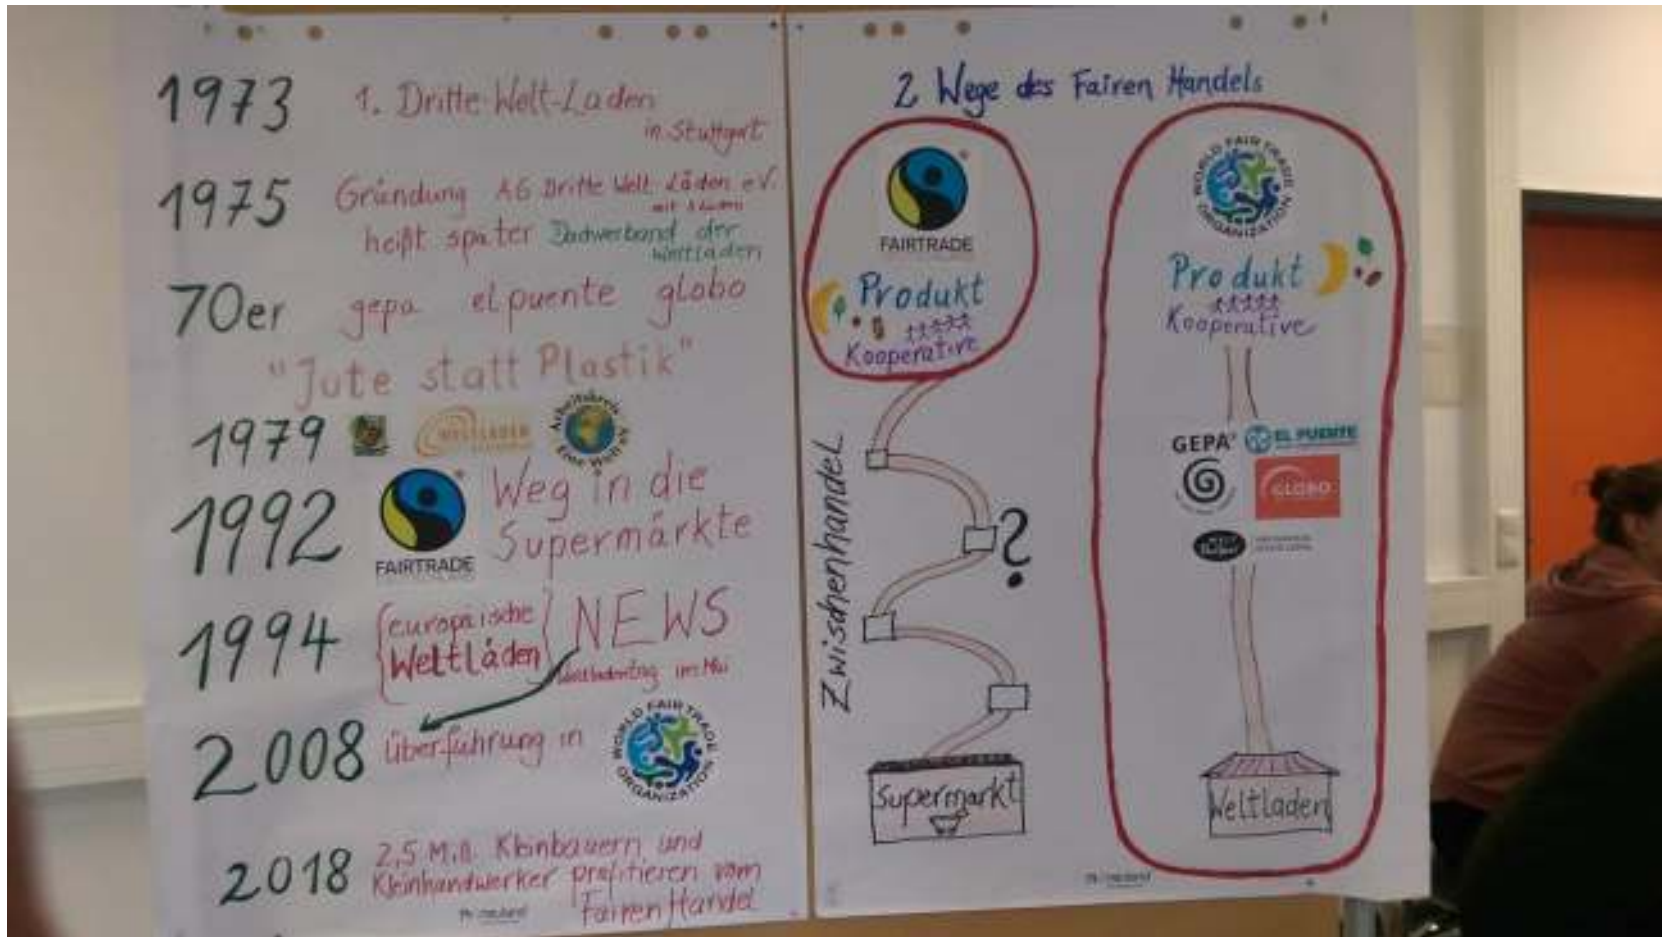 1973 1. Dritte-Welt-Laden
in Stuttgart
1975 Gründung AG Dritte Welt Läden e.V.
heißt später Dachverband der
Weltläden
70er gepa el puente globo
"Jute statt Plastik"
1979 WELTLADEN Arbeitskreis Eine Welt
1992 FAIRTRADE Weg in die
Supermärkte
1994 europäische NEWS
Weltläden Weltladentag im Mai
2008 Überführung in WORLD FAIR TRADE ORGANIZATION
2018 2,5 Mio. Kleinbauern und
Kleinhandwerker profitieren vom
Fairen Handel
2 Wege des Fairen Handels
FAIRTRADE
Produkt
Kooperative
Zwischenhandel
?
Supermarkt
WORLD FAIR TRADE ORGANIZATION
Produkt
Kooperative
GEPA EL PUENTE
GLOBO
Weltladen